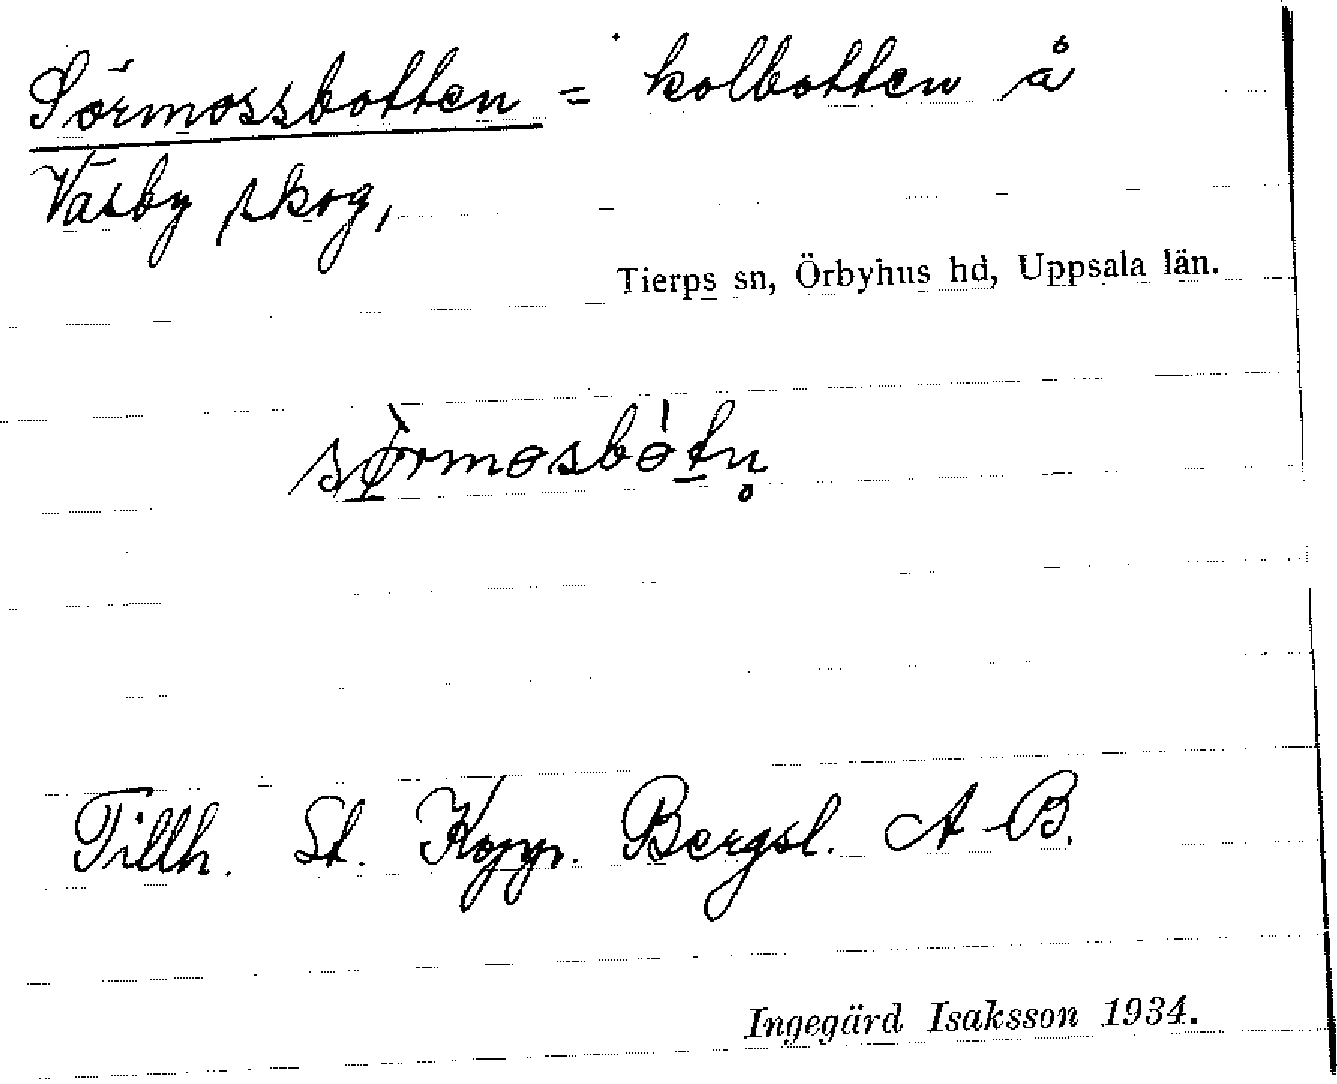 Sörmossbotten = kolbotten å
Väsby skog,
Tierps sn, Örbyhus hd, Uppsala län.
sø̀rmosbótn̥
Tillh. St. Kopp. Bergsl. A-B.
Ingegärd Isaksson 1934.